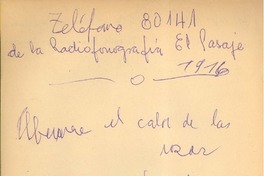 Teléfono 80141
de la Radiofonografía El Pasaje
1916
el calor de las